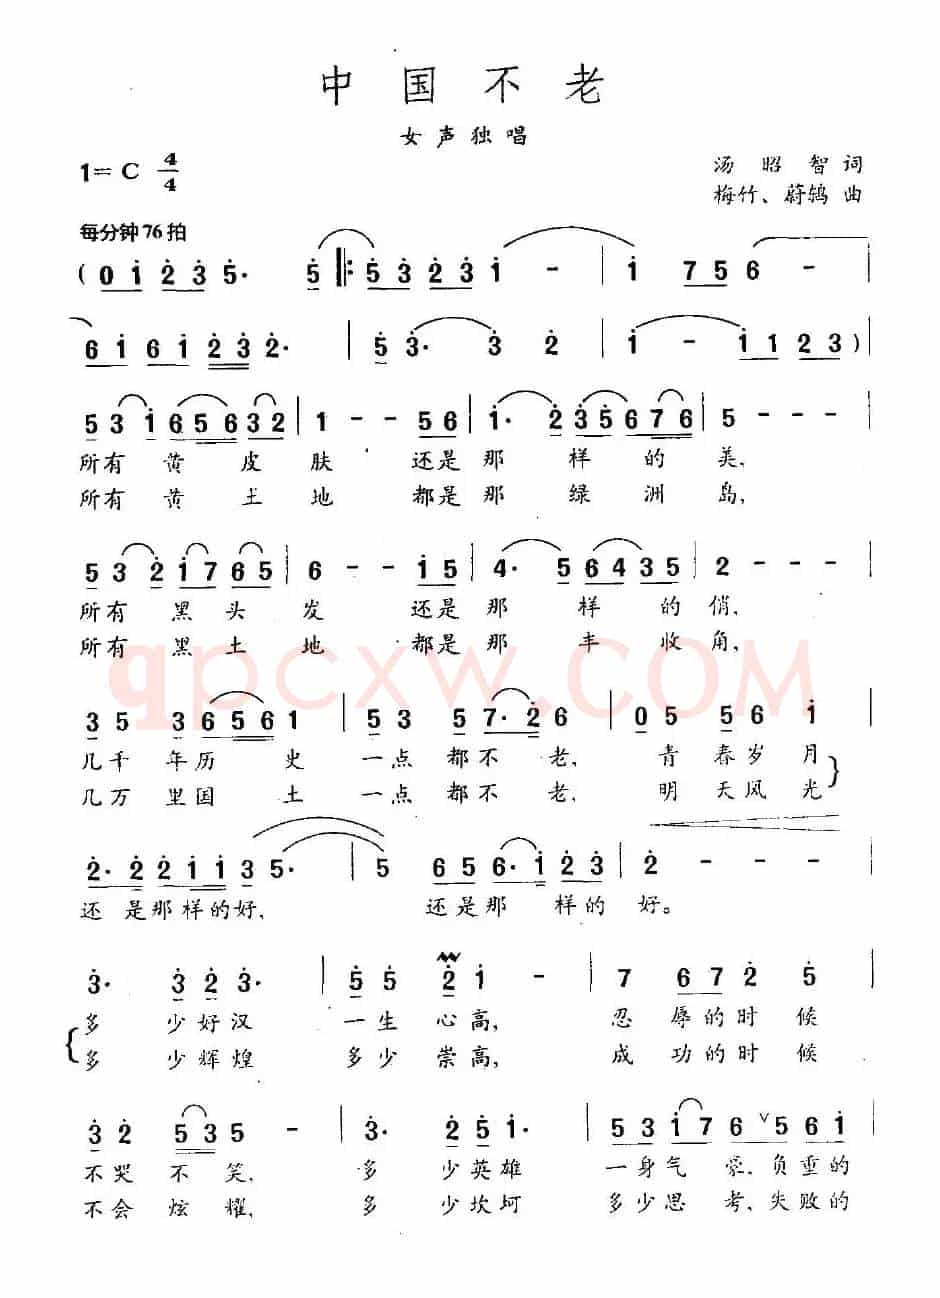 中国不老
女声独唱
1=C 4/4
汤昭智词
梅竹、蔚鸫曲
每分钟76拍
(0 1 2 3 5· 5 5 3 2 3 1 - 1 7 5 6 -
6 1 6 1 2 3 2· 5 3· 3 2 1 - 1 1 2 3)
5 3 1 6 5 6 3 2 1 - - 5 6 1· 2 3 5 6 7 6 5 - - -
所有黄皮肤还是那样的美,
所有黄土地都是那绿洲岛,
5 3 2 1 7 6 5 6 - - 1 5 4· 5 6 4 3 5 2 - - -
所有黑头发还是那样的俏,
所有黑土地都是那丰收角,
qpcxw.COM
3 5 3 6 5 6 1 5 3 5 7· 2 6 0 5 5 6 1
几千年历史一点都不老,青春岁月
几万里国土一点都不老,明天风光
2· 2 2 1 1 3 5· 5 6 5 6· 1 2 3 2 - - -
还是那样的好,还是那样的好。
3· 3 2 3· 5 5 2 1 - 7 6 7 2 5
多少好汉一生心高,忍辱的时候
多少辉煌多少崇高,成功的时候
3 2 5 3 5 - 3· 2 5 1· 5 3 1 7 6 ∨ 5 6 1
不哭不笑,多少英雄一身气豪,负重的
不会炫耀,多少坎坷多少思考,失败的